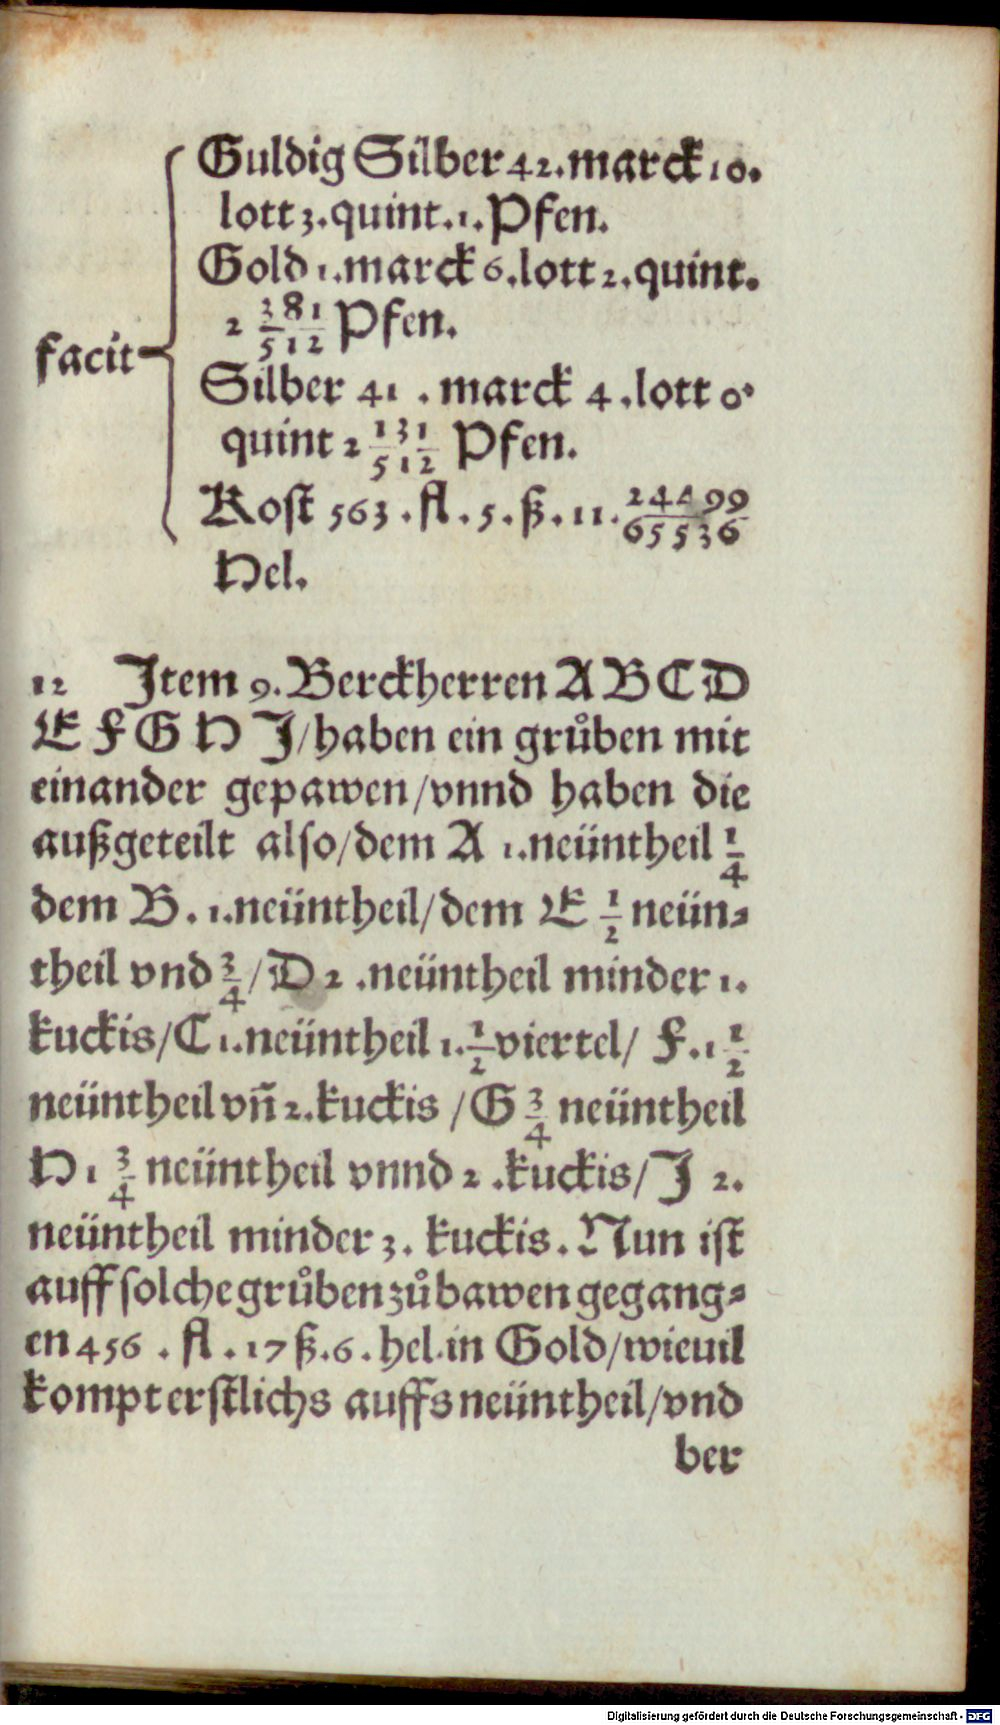 Guldig Silber 42. marck 10.
lott 3. quint. 1. Pfen.
Gold 1. marck 6. lott 2. quint.
2 381/512 Pfen.
facit
Silber 41 . marck 4 . lott 0.
quint 2 131/512 Pfen.
Kost 563 . fl . 5 . ß . 11 . 24499/65536
Hel.
12 Item 9. Berckherren A B C D
E F G H I / haben ein grůben mit
einander gepawen / vnnd haben die
außgeteilt also / dem A 1. neüntheil 1/4
dem B . 1. neüntheil / dem E 1/2 neün⸗
theil vnd 3/4 / D 2 . neüntheil minder 1.
kuckis / C 1. neüntheil 1. 1/2 viertel / F. 1 1/2
neüntheil vñ 2. kuckis / G 3/4 neüntheil
H 1 3/4 neüntheil vnnd 2 . kuckis / I 2.
neüntheil minder 3. kuckis . Nun ist
auff solche grůben zů bawen gegang⸗
en 456 . fl . 17 ß . 6 . hel. in Gold / wieuil
kompt erstlichs auffs neüntheil / vnd
ber
Digitalisierung gefördert durch die Deutsche Forschungsgemeinschaft - DFG